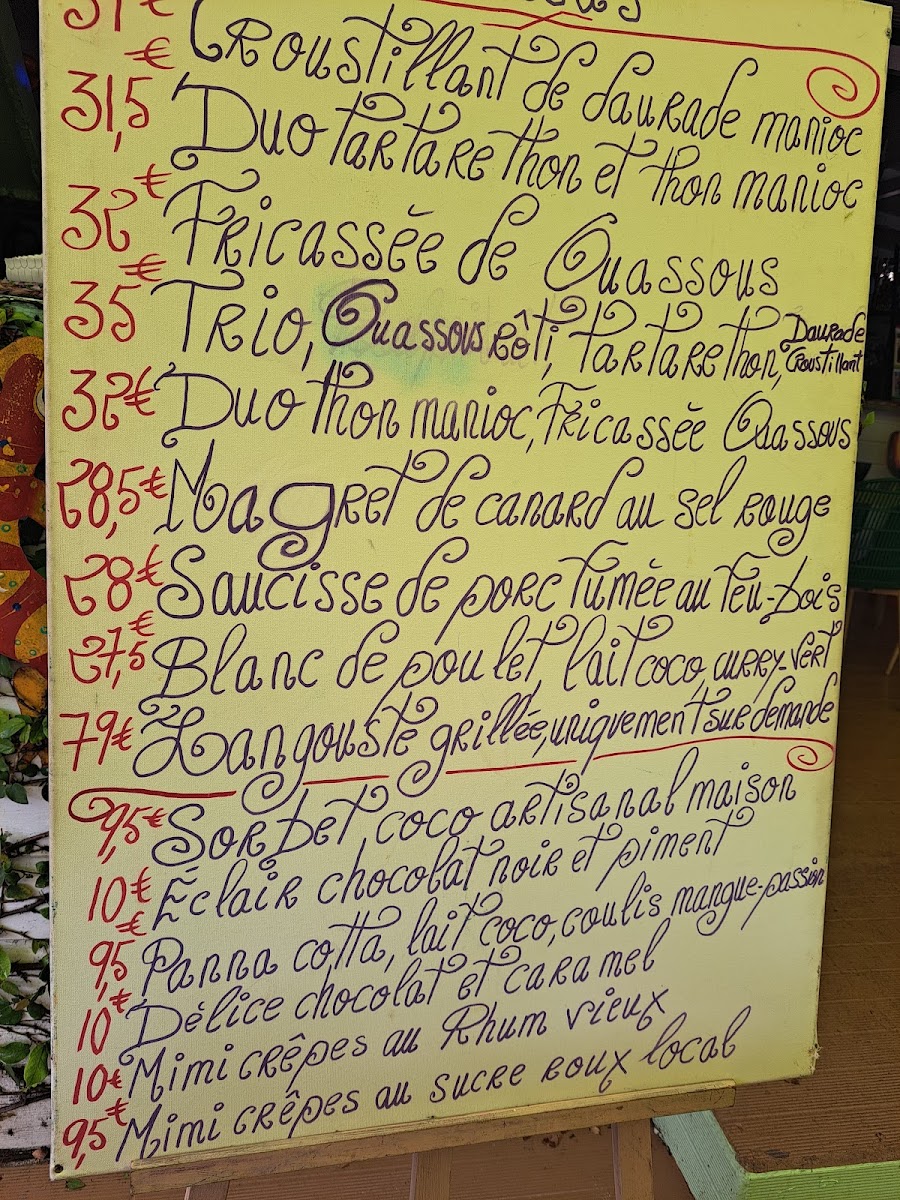 31€ Croustillant de daurade manioc
31,5€ Duo tartare thon et thon manioc
32€ Fricassée de Ouassous
35€ Trio, Ouassous rôti, tartare thon, Daurade Croustillant
32€ Duo thon manioc, Fricassée Ouassous
28,5€ Magret de canard au sel rouge
28€ Saucisse de porc fumée au feu-bois
27,5€ Blanc de poulet, lait coco, curry-vert
79€ Langouste grillée, uniquement sur demande
9,5€ Sorbet coco artisanal maison
10€ Éclair chocolat noir et piment
9,5€ Panna cotta, lait coco, coulis mangue-passion
10€ Délice chocolat et caramel
10€ Mimi crêpes au Rhum vieux
9,5€ Mimi crêpes au sucre roux local